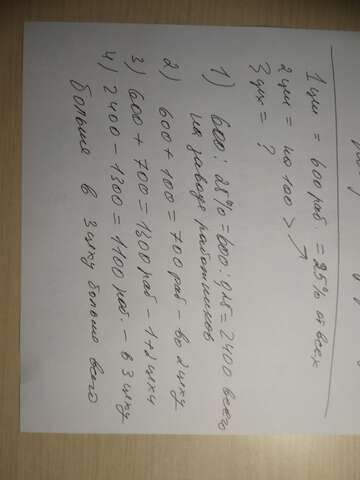 1 цех = 600 раб. = 25% от всех
2 цех = на 100 > ↗
3 цех = ?
1) 600 : 25% = 600 : 0,25 = 2400 всего
на заводе работников
2) 600 + 100 = 700 раб - во 2 цеху
3) 600 + 700 = 1300 раб - 1+2 цехи
4) 2400 - 1300 = 1100 раб. - в 3 цеху
больше в 3 цеху больше всего